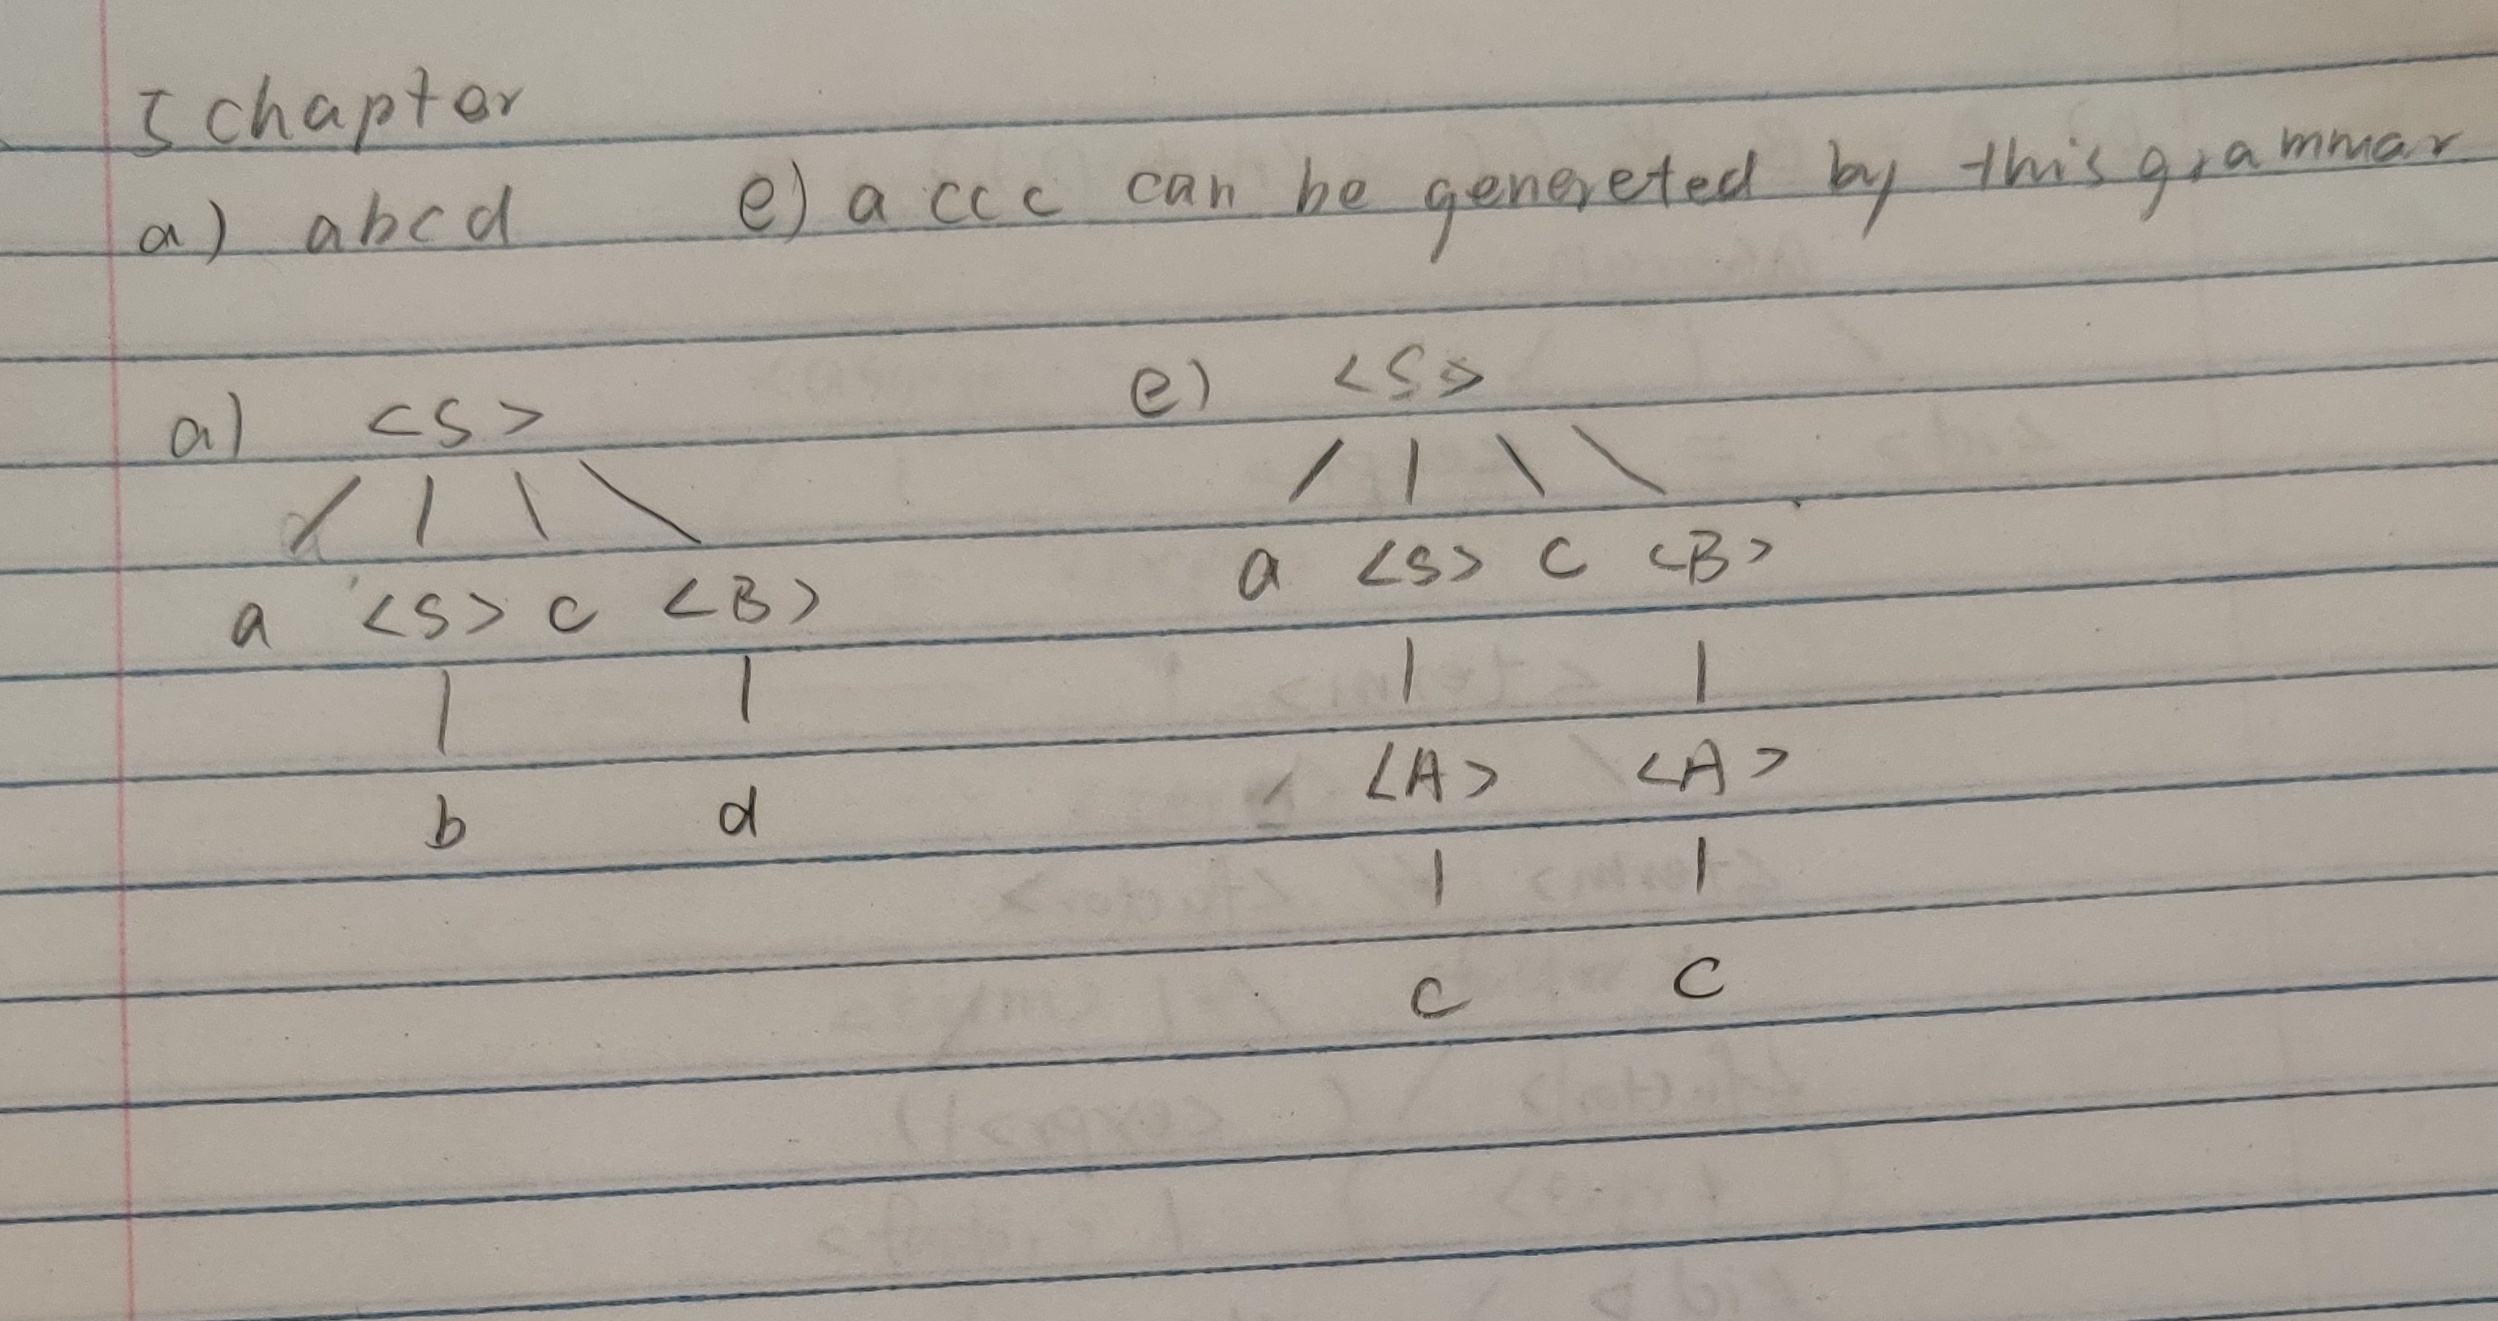 5 chapter
a) abcd e) accc can be genereted by this grammar
a) <S> e) <S>
a <S> c <B> a <S> c <B>
b d <A> <A>
c c